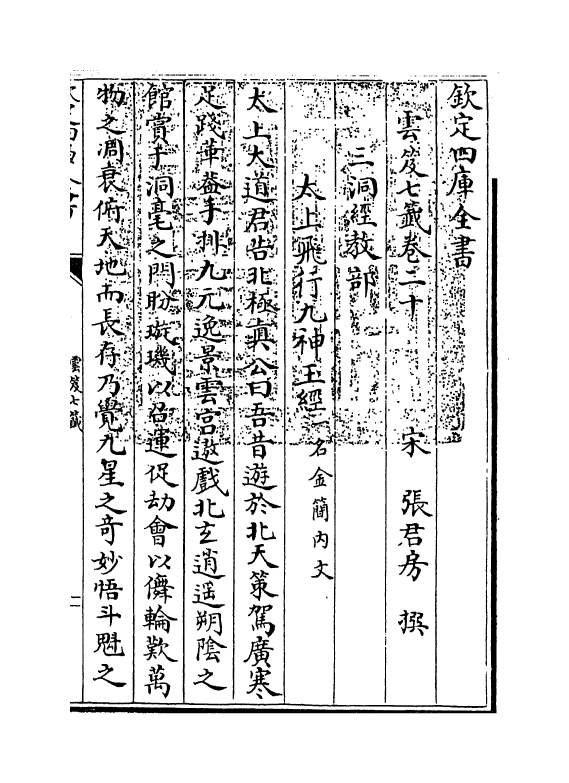 欽定四庫全書
雲笈七籖卷二十
宋 張君房 撰
三洞經教部
太上飛行九神玉經一名金簡内文
太上大道君告北極真公曰吾昔遊於北天策駕廣寒
足踐華葢手排九元逸景雲宫遨戲北玄逍遥朔隂之
館賞于洞毫之門盼璇璣以召運促劫會以儛輪歎萬
物之凋衰俯天地而長存乃覺九星之奇妙悟斗魁之
雲笈七籖